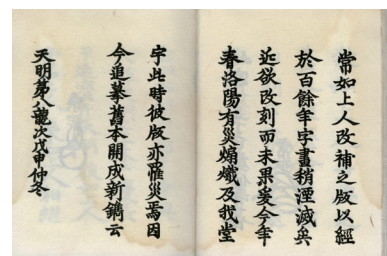 常如上人改補之版以經
於百餘年字畫稍湮滅矣
近欲改刻而未果爰今年
春洛陽有災煽熾及我堂
宇此時彼版亦罹災焉因
今追摹舊本開成新鐫云
天明第八龍次戊申仲冬